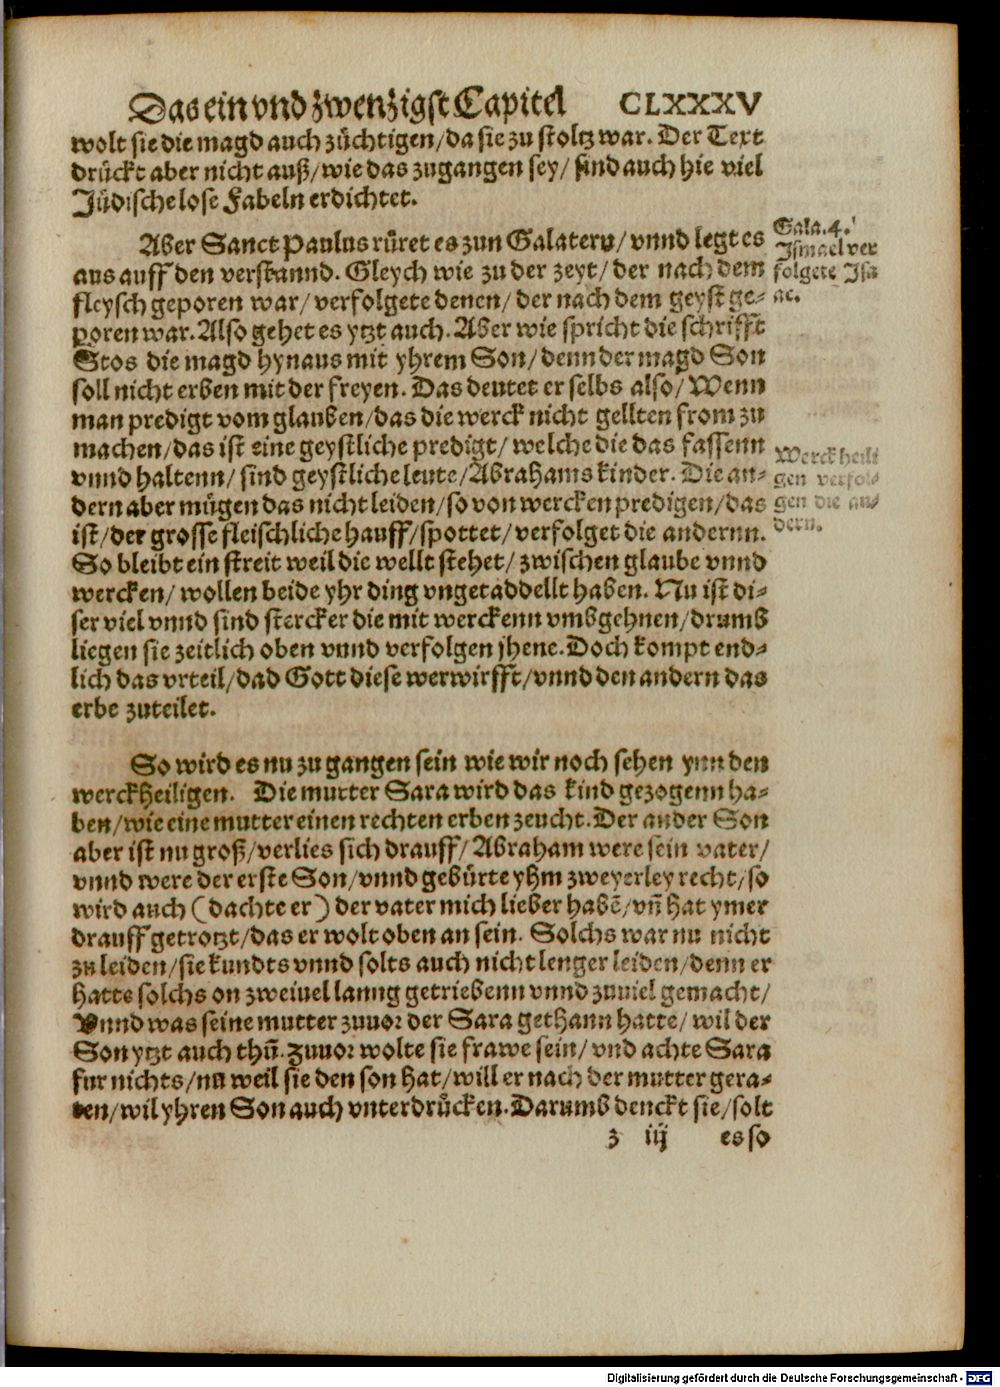 Das ein vnd zwenzigst Capitel CLXXXV
wolt sie die magd auch züchtigen/da sie zu stoltz war. Der Text
drückt aber nicht auß/wie das zugangen sey/ sind auch hie viel
Jüdische lose Fabeln erdichtet.
Aber Sanct Paulus rüret es zun Galatern/ vnnd legt es
aus auff den verstannd. Gleych wie zu der zeyt/ der nach dem
fleysch geporen war/ verfolgete denen/ der nach dem geyst ge-
poren war. Also gehet es ytzt auch. Aber wie spricht die schrifft
Stos die magd hynaus mit yhrem Son/ denn der magd Son
soll nicht erben mit der freyen. Das deutet er selbs also/ Wenn
man predigt vom glauben/das die werck nicht gellten from zu
machen/das ist eine geystliche predigt/ welche die das fassenn
vnnd haltenn/ sind geystliche leute/Abrahams kinder. Die an-
dern aber mügen das nicht leiden/so von wercken predigen/das
ist/der grosse fleischliche hauff/spottet/verfolget die andernn.
So bleibt ein streit weil die wellt stehet/ zwischen glaube vnnd
wercken/ wollen beide yhr ding vngetaddellt haben. Nu ist di-
ser viel vnnd sind stercker die mit werckenn vmbgehnen/drumb
liegen sie zeitlich oben vnnd verfolgen jhene. Doch kompt end-
lich das vrteil/dad Gott diese werwirfft/vnnd den andern das
erbe zuteilet.
Gala. 4.
Ismael ver
folgete Isa
ac.
Werckheili
gen verfol-
gen die an-
dern.
So wird es nu zu gangen sein wie wir noch sehen ynn den
werckheiligen. Die mutter Sara wird das kind gezogenn ha-
ben/wie eine mutter einen rechten erben zeucht. Der ander Son
aber ist nu groß/verlies sich drauff/Abraham were sein vater/
vnnd were der erste Son/vnnd gebürte yhm zweyerley recht/so
wird auch (dachte er) der vater mich lieber habē/vn̄ hat ymer
drauff getrotzt/das er wolt oben an sein. Solchs war nu nicht
zu leiden/sie kundts vnnd solts auch nicht lenger leiden/denn er
hatte solchs on zweiuel lanng getriebenn vnnd zuuiel gemacht/
Vnnd was seine mutter zuuor der Sara gethann hatte/ wil der
Son ytzt auch thū. Zuuor wolte sie frawe sein/ vnd achte Sara
fur nichts/nu weil sie den son hat/will er nach der mutter gera-
ten/wil yhren Son auch vnterdrücken. Darumb denckt sie/solt
z iij es so
Digitalisierung gefördert durch die Deutsche Forschungsgemeinschaft - DFG